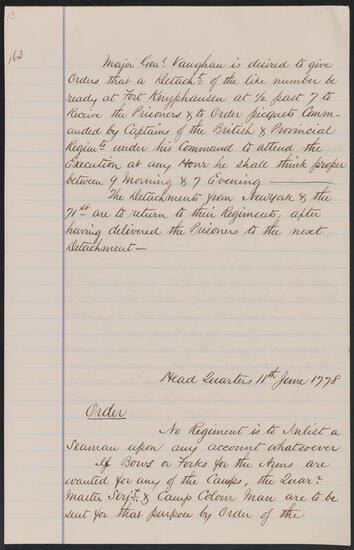 13
163
Major Genl. Vaughan is desired to give
Orders that a Detacht. of the like number be
ready at Fort Knyphausen at ½ past 7 to
Receive the Prisoners & to Order picquets Comm-
anded by Captains of the British & Provincial
Regimts. under his Command to attend the
Execution at any Hour he shall think proper
between 9 Morning & 7 Evening —
The Detachments from New York & the
71st are to return to their Regiments, after
having delivered the Prisoners to the next
Detachment —
Head Quarters 11th June 1778
Order
No Regiment is to Inlist a
Seaman upon any account whatsoever
If Bows or Forks for the Arms are
wanted for any of the Camps, the Quar:
Master Serjt. & Camp Colour Man are to be
sent for that purpose by Order of the